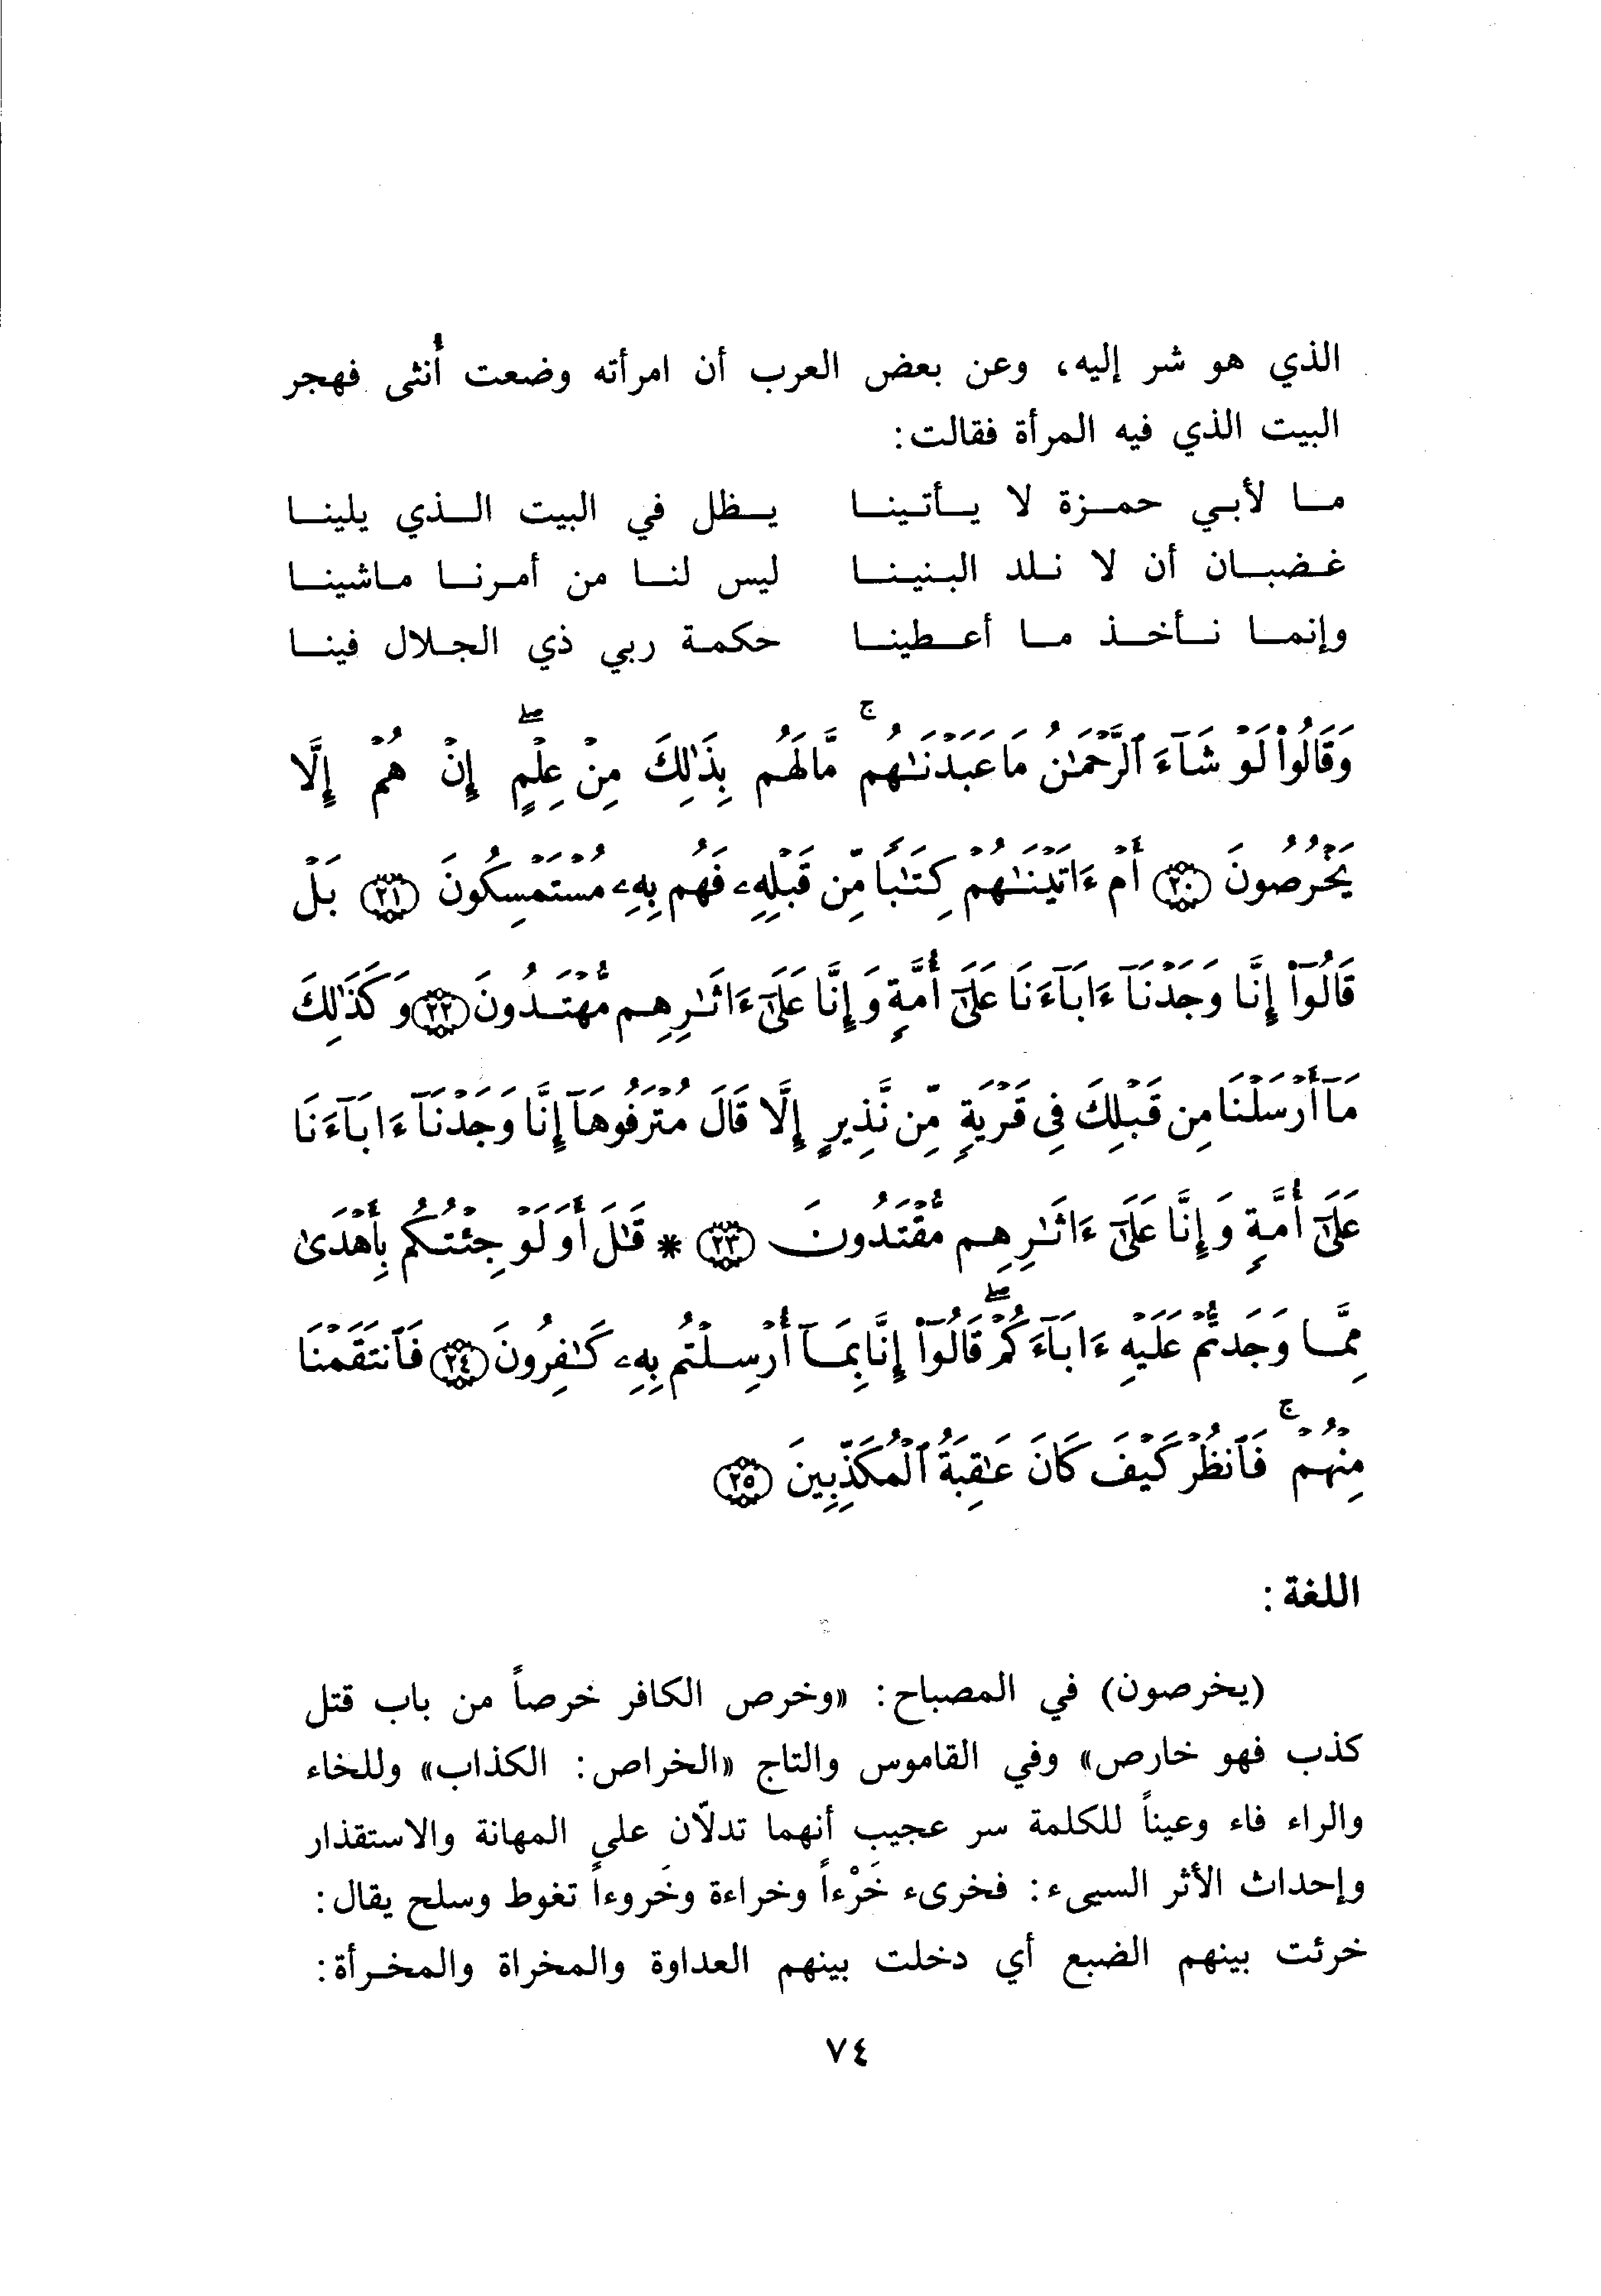 الذي هو شر إليه، وعن بعض العرب أن امرأته وضعت أُنثى فهجر
البيت الذي فيه المرأة فقالت:
ما لأبي حمزة لا يأتينا يظل في البيت الذي يلينا
غضبان أن لا نلد البنينا ليس لنا من أمرنا ماشينا
وإنما نأخذ ما أعطينا حكمة ربي ذي الجلال فينا
وَقَالُوا۟ لَوْ شَآءَ ٱلرَّحْمَـٰنُ مَا عَبَدْنَـٰهُم ۚ مَّا لَهُم بِذَٰلِكَ مِنْ عِلْمٍ ۖ إِنْ هُمْ إِلَّا
يَخْرُصُونَ ﴿٢٠﴾ أَمْ ءَاتَيْنَـٰهُمْ كِتَـٰبًا مِّن قَبْلِهِۦ فَهُم بِهِۦ مُسْتَمْسِكُونَ ﴿٢١﴾ بَلْ
قَالُوٓا۟ إِنَّا وَجَدْنَآ ءَابَآءَنَا عَلَىٰٓ أُمَّةٍ وَإِنَّا عَلَىٰٓ ءَاثَـٰرِهِم مُّهْتَدُونَ ﴿٢٢﴾ وَكَذَٰلِكَ
مَآ أَرْسَلْنَا مِن قَبْلِكَ فِى قَرْيَةٍ مِّن نَّذِيرٍ إِلَّا قَالَ مُتْرَفُوهَآ إِنَّا وَجَدْنَآ ءَابَآءَنَا
عَلَىٰٓ أُمَّةٍ وَإِنَّا عَلَىٰٓ ءَاثَـٰرِهِم مُّقْتَدُونَ ﴿٢٣﴾ * قَـٰلَ أَوَلَوْ جِئْتُكُم بِأَهْدَىٰ
مِمَّا وَجَدتُّمْ عَلَيْهِ ءَابَآءَكُمْ ۖ قَالُوٓا۟ إِنَّا بِمَآ أُرْسِلْتُم بِهِۦ كَـٰفِرُونَ ﴿٢٤﴾ فَٱنتَقَمْنَا
مِنْهُمْ ۚ فَٱنظُرْ كَيْفَ كَانَ عَـٰقِبَةُ ٱلْمُكَذِّبِينَ ﴿٢٥﴾
اللغة:
(يخرصون) في المصباح: «وخرص الكافر خرصاً من باب قتل
كذب فهو خارص» وفي القاموس والتاج «الخراص: الكذاب» وللخاء
والراء فاء وعيناً للكلمة سر عجيب أنهما تدلّان على المهانة والاستقذار
وإحداث الأثر السيىء: فخرىء خَرْءاً وخراءة وخَروءاً تغوط وسلح يقال:
خرئت بينهم الضبع أي دخلت بينهم العداوة والمخراة والمخرأة:
٧٤